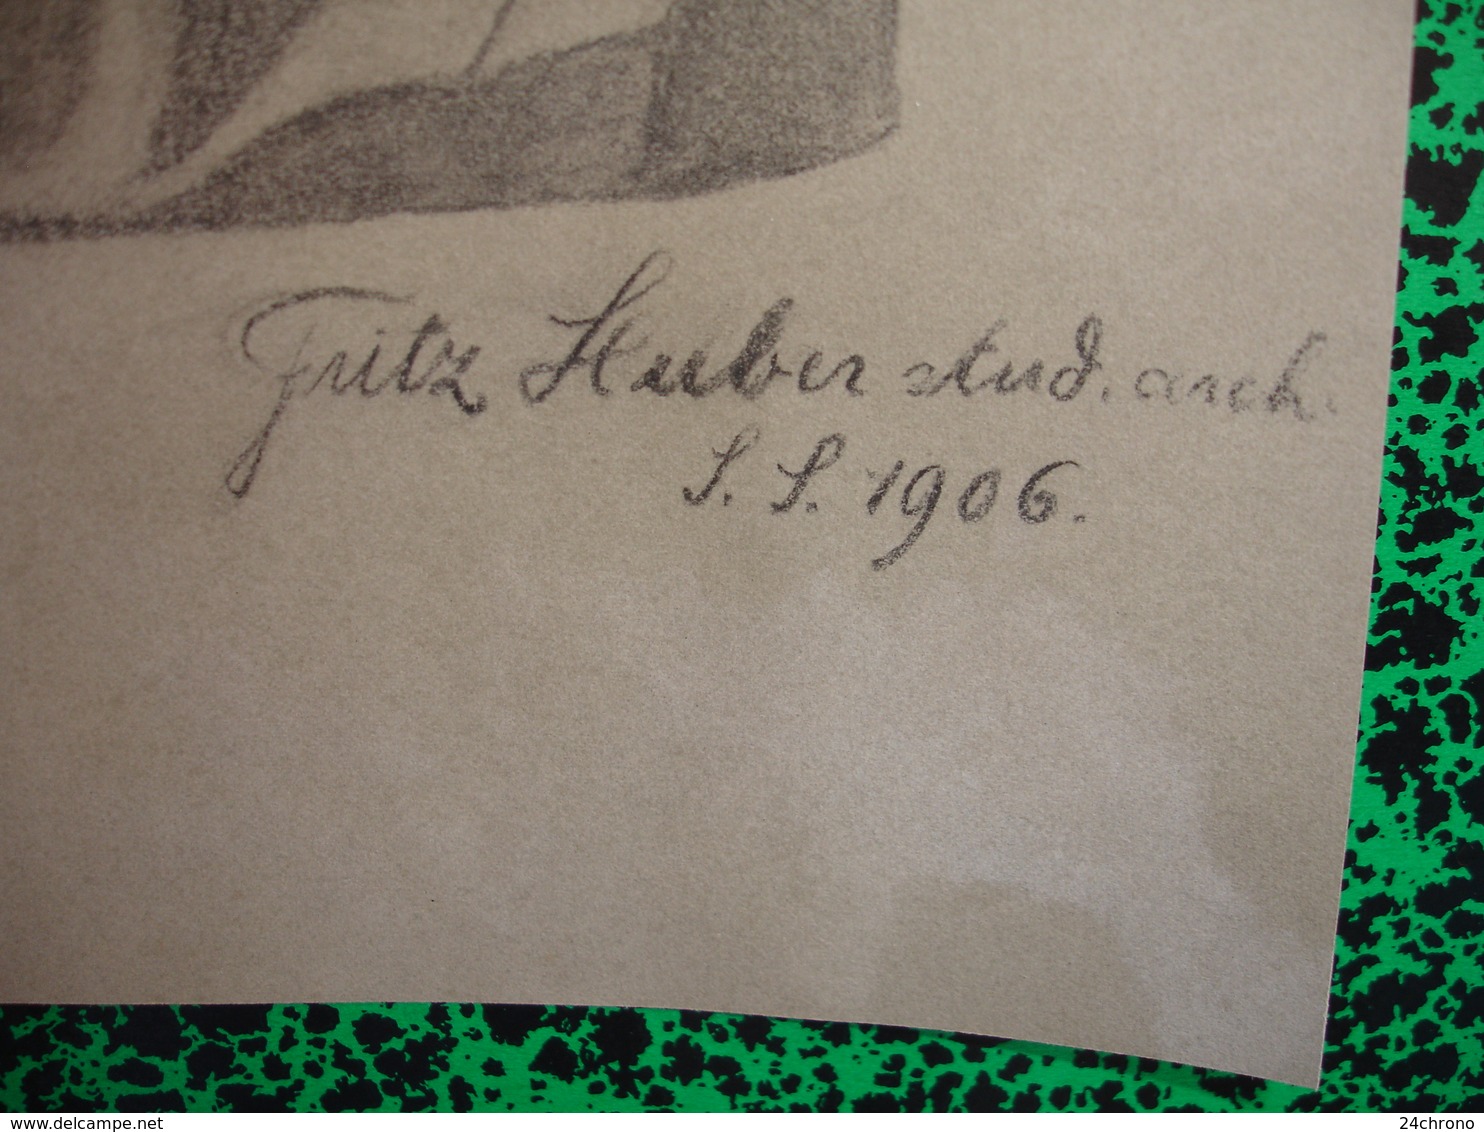 Fritz Huber stud. arch.
S. S. 1906.
www.delcampe.net
24chrono